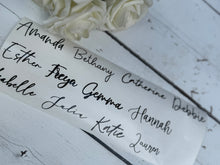 Amanda Bethany Catherine Debbie
Esther Freya Gemma Hannah
Julia Katie Lauren